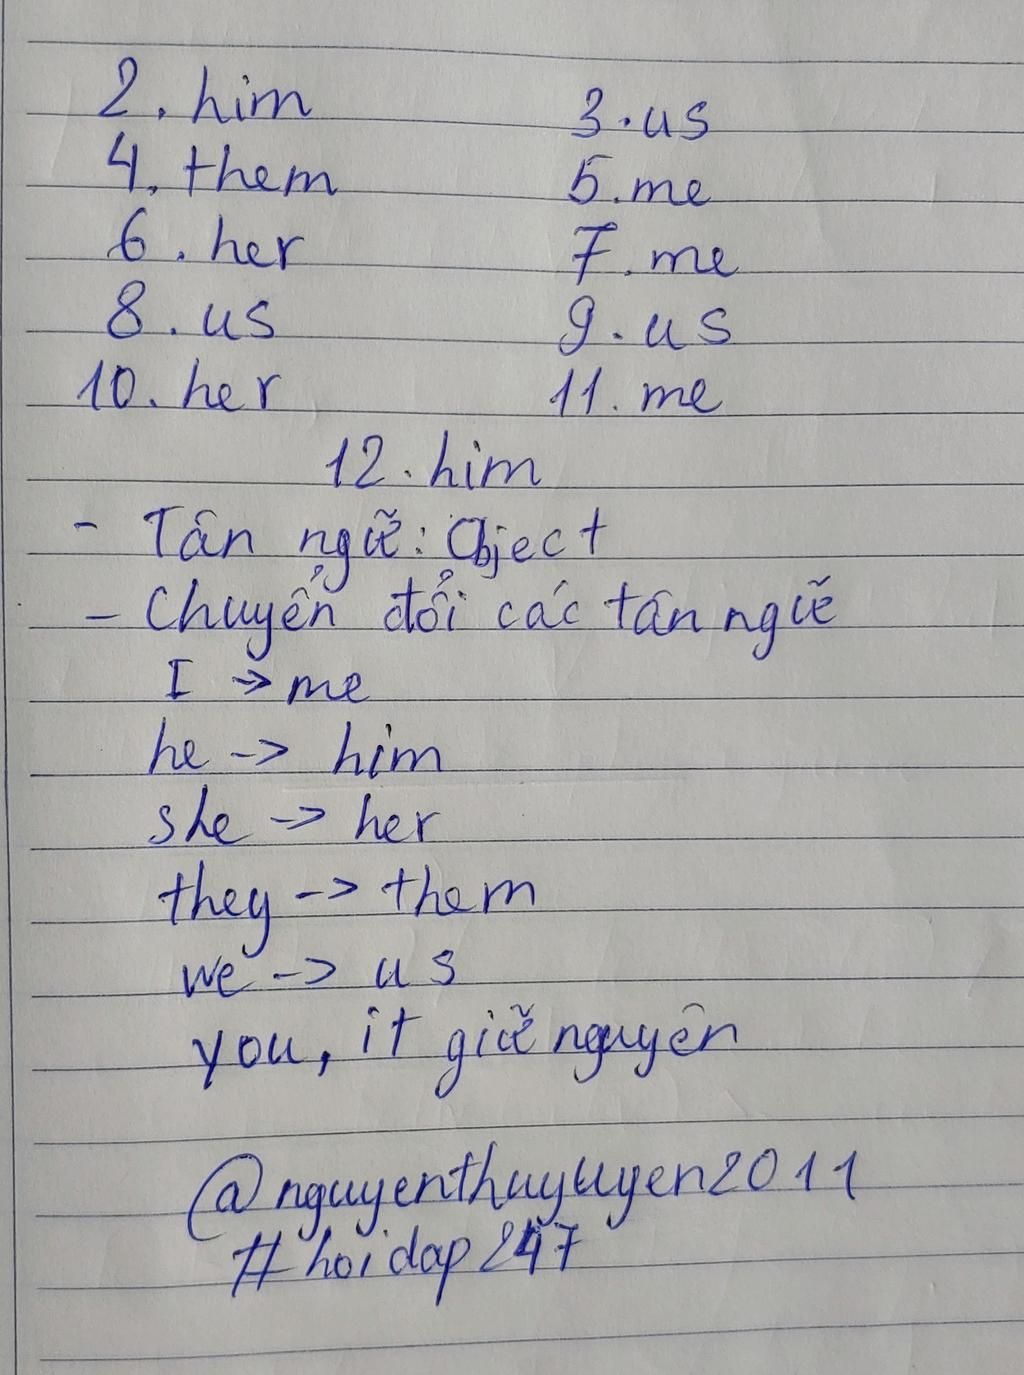 2. him 3. us
4. them 5. me
6. her 7. me
8. us 9. us
10. her 11. me
12. him
- Tân ngữ: Object
- Chuyển đổi các tân ngữ
I -> me
he -> him
she -> her
they -> them
we -> us
you, it giữ nguyên
@nguyenthuyuyen2011
#hoidap247